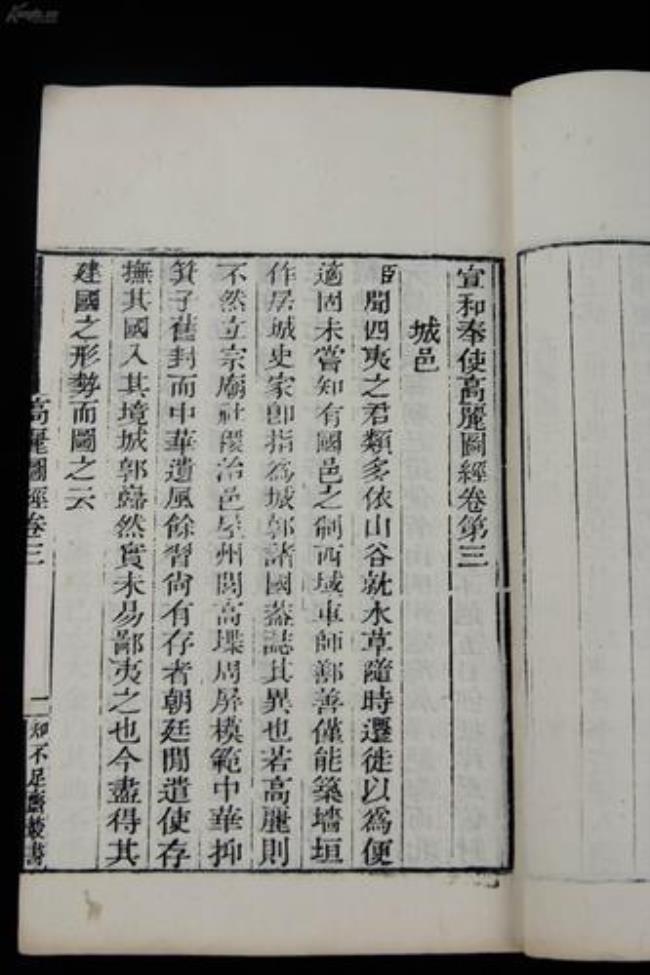 宣和奉使高麗圖經卷第三
城邑
臣聞四夷之君類多依山谷就水草隨時遷徙以爲便
適固未嘗知有國邑之制西域車師鄯善僅能築墻垣
作居城史家卽指爲城郭諸國蓋誌其異也若高麗則
不然立宗廟社稷治邑屋州閭高堞周屏模範中華抑
箕子舊封而中華遺風餘習尙有存者朝廷閒遣使存
撫其國入其境城郭巋然實未易鄙夷之也今盡得其
建國之形勢而圖之云
高麗圖經卷三
一
知不足齋叢書